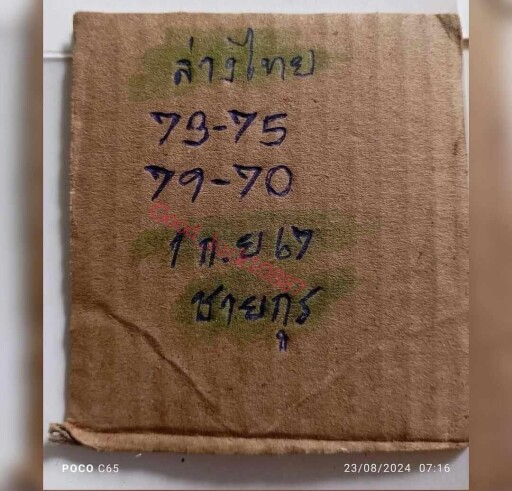 ล่างไทย
73-75
79-70
1 ก.ย 67
ชายกูร
POCO C65
23/08/2024 07:16